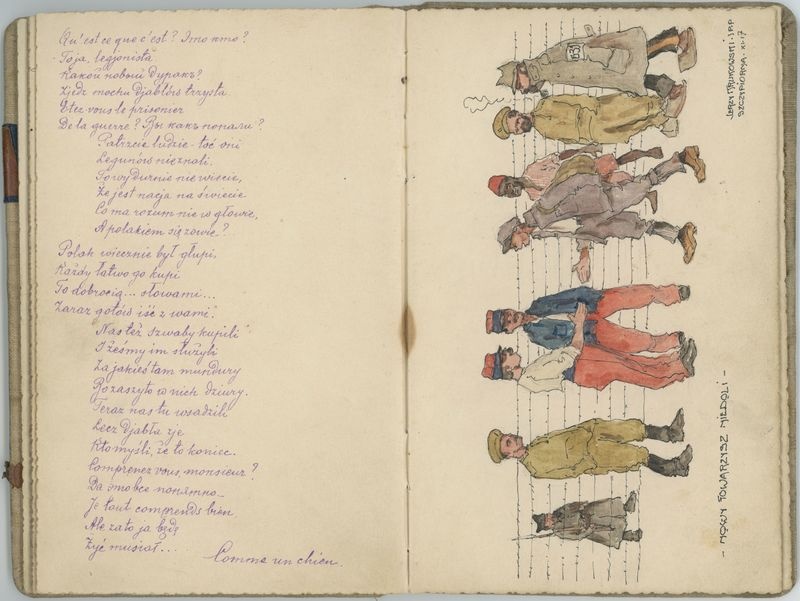 Qu'est ce que c'est? Это кто?
- To ja, legjonista
Какой новый дуракъ?
Zjedz mochu djabłów trzysta
Etez vous le prisonier
De la guerre? Вы какъ попали?
Patrzcie ludzie - toć oni
Legunów nieznali.
To wy durnie nie wiecie,
Że jest nacja na świecie
Co ma rozum nie w głowie,
A polakiem się zowie?
Polak wiecznie był głupi,
Każdy łatwo go kupi
To dobrocią... słowami...
Zaraz gotów iść z wami.
Nas też szwaby kupili
I żeśmy im służyli
Za jakieś tam mundury
Bo zaszyto w nich dziury.
Teraz nas tu wsadzili
Lecz djabła zje
Kto myśli, że to koniec.
Comprenez vous, monsieur?
Да это все понятно -
Je tout comprends bien
Ale zato ja będę
Żyć musiał...
Comme un chien.
1631
JERZY I.R.P
SZCZYPIORNA. XI. 17
- NOWY TOWARZYSZ NIEDOLI -